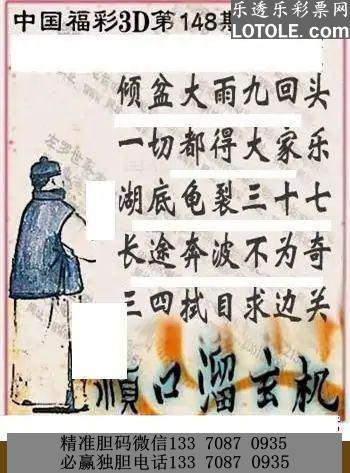 乐透乐彩票网
LOTOLE.com
中国福彩3D第148期
倾盆大雨九回头
一切都得大家乐
湖底龟裂三十七
长途奔波不为奇
三四拭目求边关
顺口溜玄机
精准胆码微信133 7087 0935
必赢独胆电话133 7087 0935